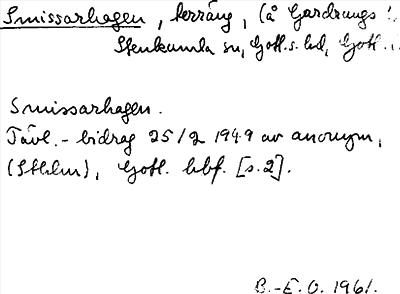 Smissarhagen, terräng, (å Gardrungs
Stenkumla sn, Gotl. s. hd, Gotl.
Smissarhagen.
Tävl.-bidrag 25/2 1949 av anonym,
(Sthlm), Gotl. hbf. [s.2].
B.-E.O. 1961.